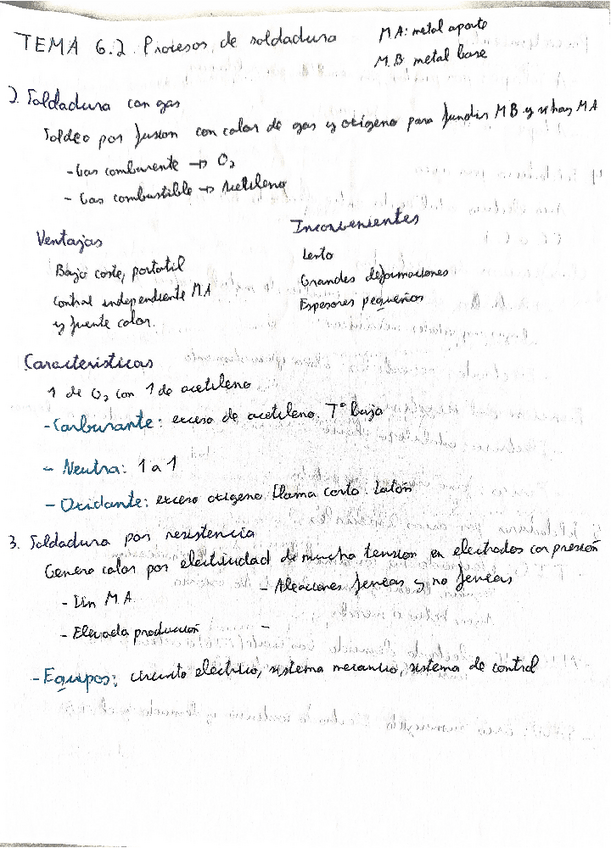 TEMA 6.2 Procesos de soldadura
MA: metal aporte
M.B metal base
2. Soldadura con gas
Soldeo por fusion con calor de gas y oxigeno para fundir MB y si hay MA
- Gas comburente → O2
- Gas combustible → Acetileno
Ventajas
Bajo coste, portatil
Control independiente MA
y fuente calor.
Inconvenientes
Lento
Grandes deformaciones
Espesores pequeños
Caracteristicas
1 de O2 con 1 de acetileno
- Carburante: exceso de acetileno. Tº baja
- Neutra: 1 a 1
- Oxidante: exceso oxigeno llama corta. Laton
3. Soldadura por resistencia
Genera calor por electricidad de mucha tension en electrodos con presión
- Sin MA
- Aleaciones ferreas y no ferreas
- Elevada producción
-
- Equipos: circuito electrico, sistema mecanico, sistema de control